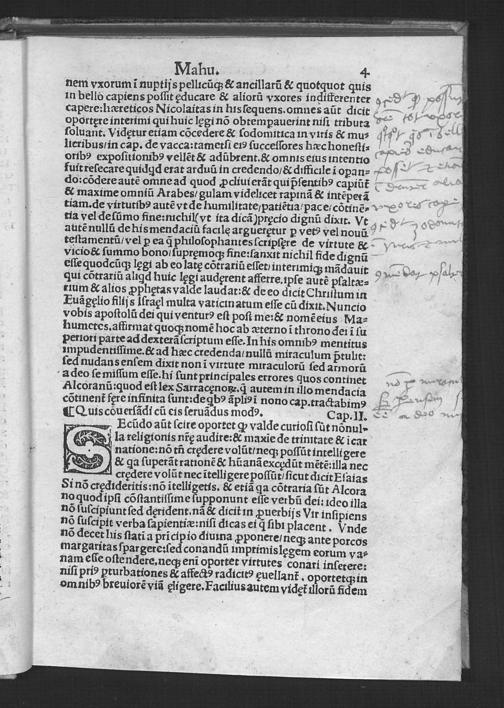 Mahu. 4
nem vxorum ī nuptijs pellicūq; & ancillarū & quotquot quis
in bello capiens possit ęducare & aliorū vxores indifferenter
capere: hæreticos Nicolaítas in his sequens. omnes aūt dicit
oportęre interimi qui huic legi nō obtempauerint nisi tributa
soluant. Vidętur etiam cōcędere & sodomítica in viris & mu
lieribus/in cap. de vacca: tametsi ei⁹ successores hæc honesti⸗
orib⁹ expositionib⁹ vellēt & adūbrent. & omnis eius intentio
fuit resecare quidqd erat arduū in credendo/ & difficile ī opan⸗
do: cōdere autē omne ad quod ꝓcliui erāt qui p̄sentib⁹ capiūt̄
& maxime omniū Arabes/ gulam videlicet rapinā & intēperā
tiam. de virtutibus autē vt de humilitate/ patiētia/ pace/ cōtinē⸗
tia vel desūmo fine: nichil (vt ita dicā) pręcio dignū dixit. Vt
autē nullū de his mendaciū facile argueretur ꝑ vet⁹ vel nouū
testamentū/ vel ꝑ ea q̄ philosophantes scripsęre de virtute &
vicio & summo bono/ supremoq; fine: sanxit nichil fide dignū
esse quodcūq; legi ab eo latę cōtrariū esset/ interimiq; mādauit
qui cōtrariū aliqd huic legi audęrent afferre. ipse autē psaltæ⸗
rium & alios ꝓphetas valde laudat: & de eo dicit Christum in
Euāgelio filijs Israęl multa vaticinatum esse cū dixit. Nuncio
vobis apostolū dei qui ventur⁹ est post me: & nomē eius Ma⸗
humetes, affirmat quoq; nomē hoc ab æterno ī throno dei ī su
periori parte ad dexterā scriptum esse. In his omnib⁹ mentitus
impudentissime. & ad hæc credenda/ nullū miraculum ꝓtulit:
sed nudans ensem dixit non ī virtute miraculorū sed armorū
a deo se missum esse. hi sunt principales errores quos continet
Alcoranū: quod est lex Sarracęnoꝝ. q̄ autem in illo mendacia
cōtinent̄ fęre infinita sunt: de qb⁹ āpli⁹ ī nono cap. tractabim⁹
¶ Quis couersādi cū eis seruādus mod⁹. Cap. II.
SEcūdo aūt scire oportet ꝙ valde curiosi sūt nōnul⸗
la religionis nr̄ę audire: & maxīe de trinitate & īcar
natione: nō tn̄ cręderꝛe volūt/ neq; possūt intelligere
& qa superāt rationē & hūanā excędūt mētē: illa nec
cręderꝛe volūt nec ītelligere possūt/ sicut dicit Esaias
Si nō cręderitis: nō ītelligetis. & etiā qa cōtraria sūt Alcora
no quod ipsi cōstantissime supponunt esse verbū dei: ideo illa
nō suscipiunt sed dęrident. nā & dicit in ꝓuerbijs Vir insipiens
nō suscipit verba sapientiæ: nisi dicas ei q̄ sibi placent. Vnde
nō decet his stati a pricipio diuina ꝓponere/ neq; ante porcos
margaritas spargere: sed conandū imprimis lęgem eorum va⸗
nam esse ostendere, neq; enī oportet virtutes conari inserere:
nisi pri⁹ ꝑturbationes & affect⁹ radicit⁹ ęuellant̄. oportetq; in
omnib⁹ breuiorē viā ęligere. Facilius autem vidęt̄ illorū fidem